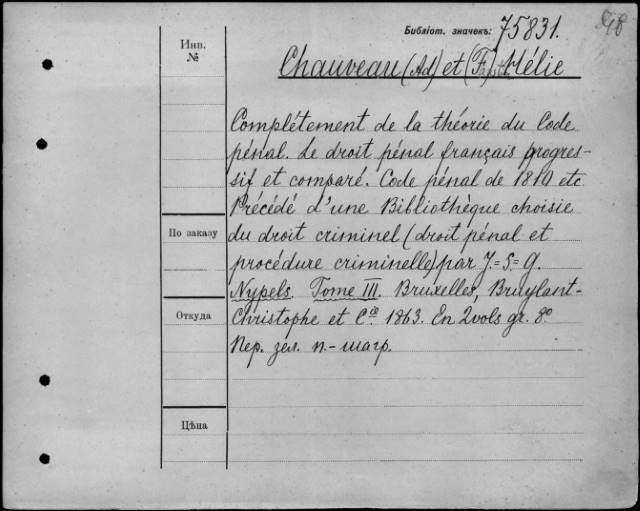 Библіот. значекъ: 75831.
Инв.
№
Chauveau (Ad) et (F) Hélie
Complétement de la théorie du Code
pénal. Le droit pénal français progres-
sif et comparé. Code pénal de 1810 etc
Précédé d'une Bibliothèque choisie
По заказу
du droit criminel (droit pénal et
procédure criminelle) par J.=S=G.
Nypels. Tome III. Bruxelles, Bruylant-
Откуда
Christophe et Cie 1863. En 2 vols gr. 8º
Пер. зел. п.-шагр.
Цѣна